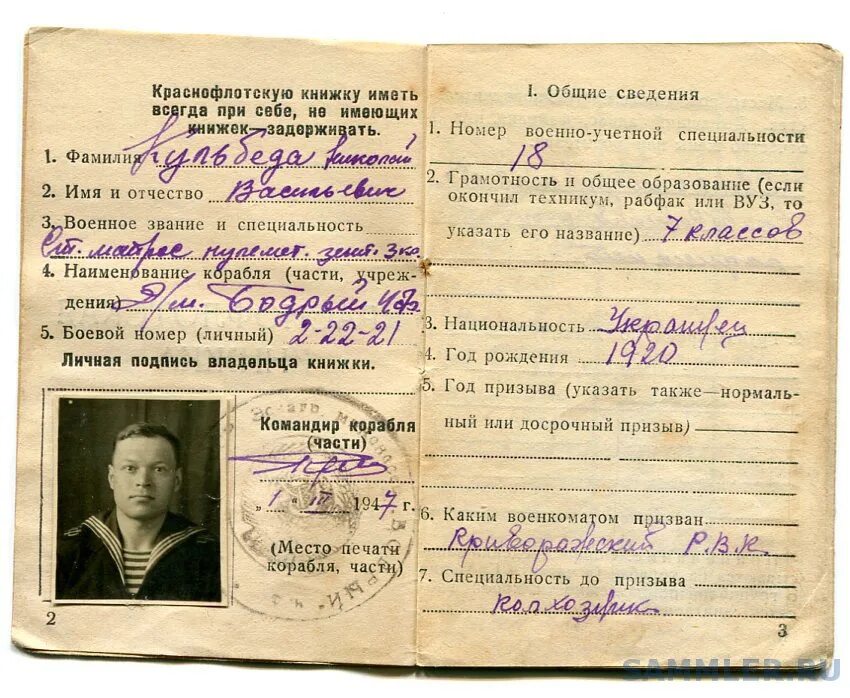 Краснофлотскую книжку иметь
всегда при себе, не имеющих
книжек—задерживать.
1. Фамилия Кульбеда Николай
2. Имя и отчество Васильевич
3. Военное звание и специальность
Ст. матрос пулемет. зент. 3 ко.
4. Наименование корабля (части, учреж-
дения) Э/м. Бодрый ЧФ
5. Боевой номер (личный) 2-22-21
Личная подпись владельца книжки.
Командир корабля
(части)
„1“ III 1947 г.
(Место печати
корабля, части)
БОДРЫЙ
2
I. Общие сведения
1. Номер военно-учетной специальности
18
2. Грамотность и общее образование (если
окончил техникум, рабфак или ВУЗ, то
указать его название) 7 классов
3. Национальность Украинец
4. Год рождения 1920
5. Год призыва (указать также—нормаль-
ный или досрочный призыв)
6. Каким военкоматом призван
Криворожский Р.В.К.
7. Специальность до призыва
колхозник
3
SAMMLER.RU